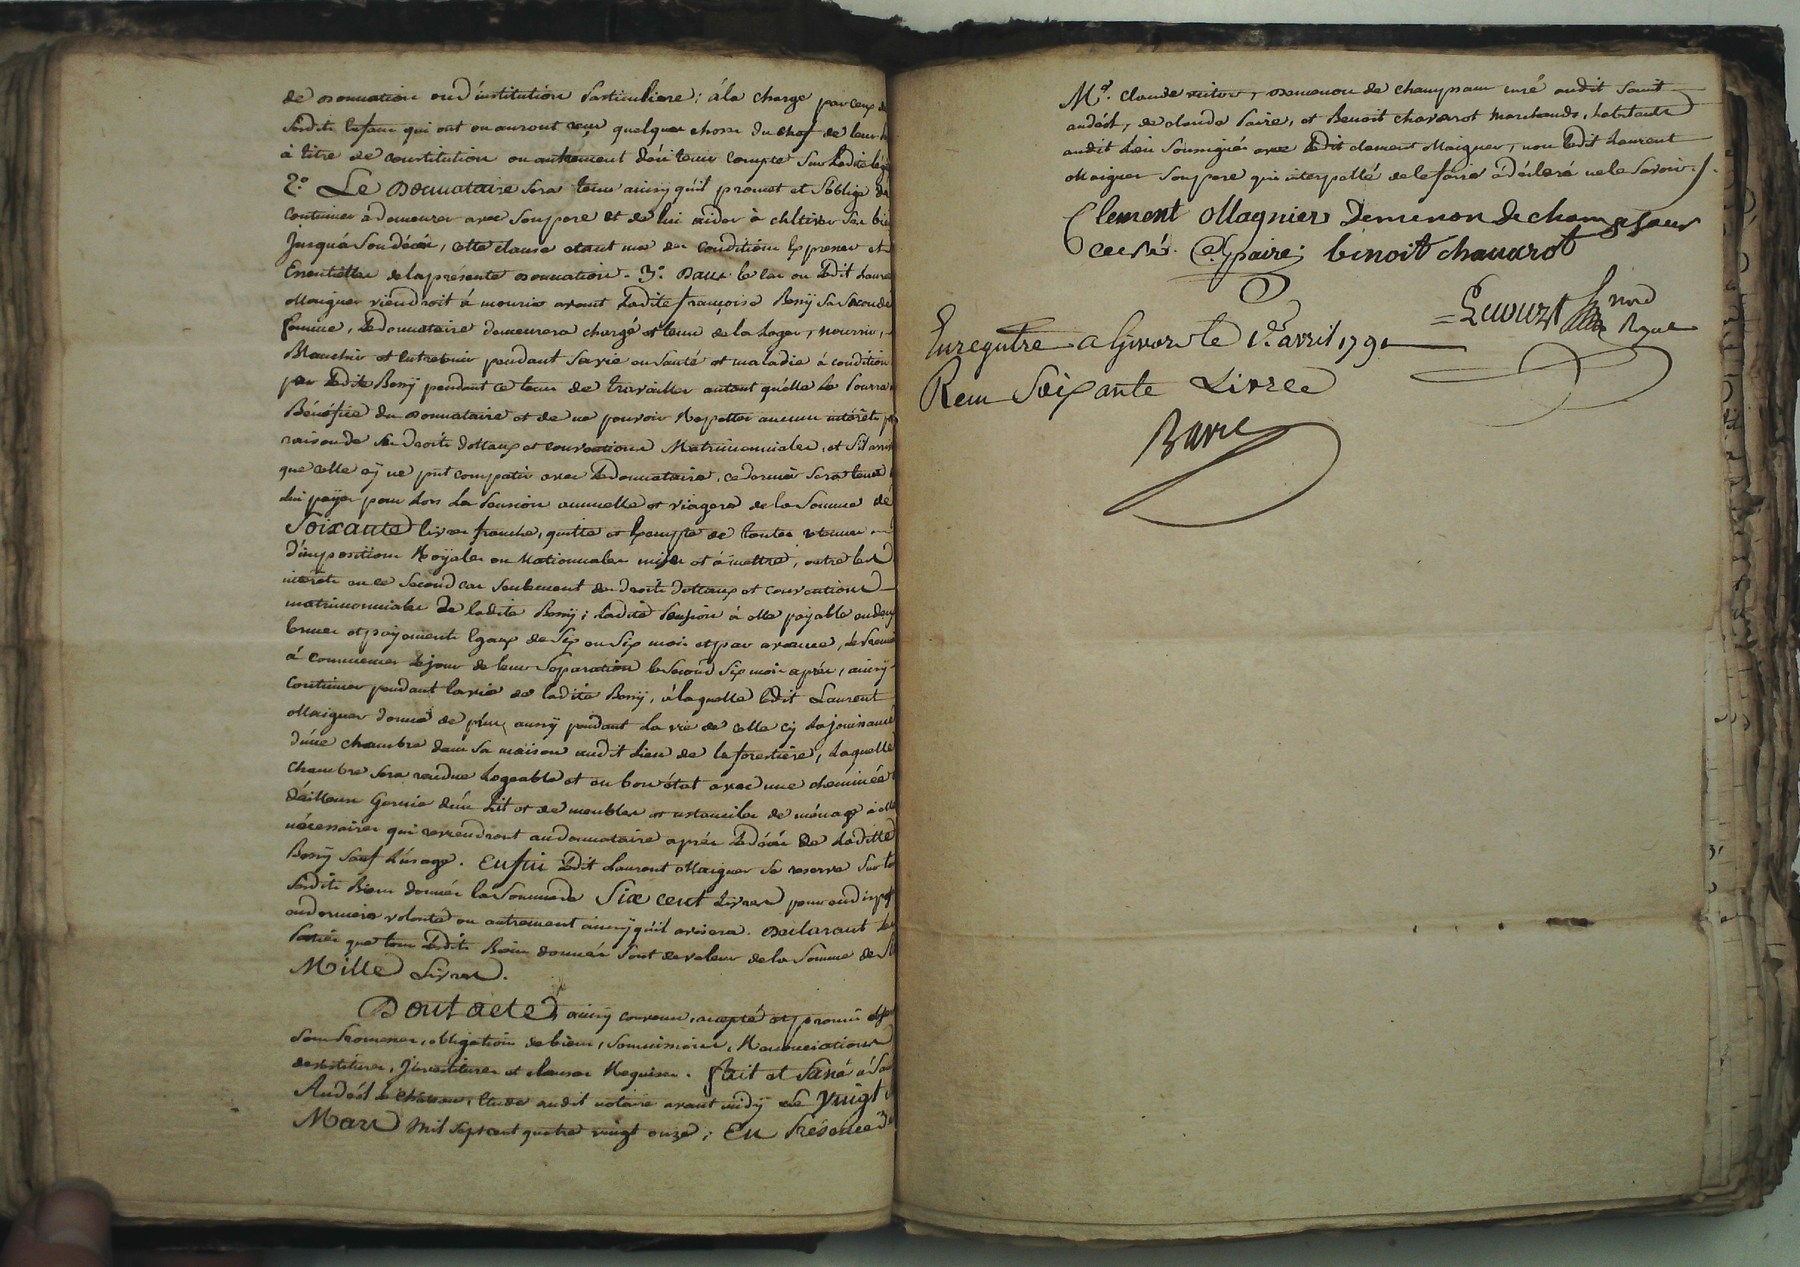 de donnation ou d'institution particuliere; à la charge par ceux de
sesdits enfans qui ont ou auront reçu quelque chose du chef de leur
à titre de constitution ou autrement d'en tenir compte sur ladite
2.° Le Donnataire sera tenu ainsy qu'il promet et s'oblige de
continuer à demeurer avec son pere et de lui aider à cultiver ses
jusqu'à son décès, cette clause etant une des conditions expresses et
Essentielles de la présente donnation. 3.° Dans le cas ou ledit
Maignier viendroit à mourir avant ladite françoise Bossy sa seconde
femme, le donnataire demeurera chargé et tenu de la loger, nourrir,
Blanchir et entretenir pendant sa vie en santé et maladie à condition
par ladite Bossy pendant ce tems de travailler autant qu'elle le pourra
Bénéfice du donnataire et de ne pouvoir Repetter aucuns intérêts
raison de ses droits dottaux et conventions Matrimonniales, et s'il
que celle cy ne pût compatir avec le donnataire, ce dernier sera tenu
lui payer pour lors la pension annuelle et viagere de la somme de
Soixante livres franche, quitte et exempte de toutes retenues
d'impositions Royales ou Nationnales mises et à mettre, outre les
intérêts en ce second cas seulement des droits dottaux et conventions
matrimonniales de ladite Bossy; ladite pension à elle payable en deux
termes et payements egaux de six en six mois et par avance, le
à commencer le jour de leur séparation le second six mois après, ainsy
continuer pendant la vie de ladite Bossy, à laquelle ledit Laurent
Maignier donne de plus, aussy pendant la vie de celle cy la jouissance
d'une chambre dans sa maison audit lieu de la forestiere, laquelle
chambre sera rendue logeable et en bon état avec une cheminée
d'ailleurs Garnie d'un Lit et de meubles et ustanciles de ménage à
nécessaires qui reviendront au donnataire après le décès de ladite
Bossy sauf l'usage. Enfin ledit Laurent Maignier se reserve sur
sesdits Biens donnés la somme de Six cent Livres pour en
en derniere volonté ou autrement ainsy qu'il avisera. Declarant les
parties que tous lesdits Biens donnés sont de valeur de la somme de
Mille Livres.
Dont acte, ainsy convenu, accepté et promis
sous serment, obligation de biens, soumissions, Renonciations
devestitures, Investitures et clauses Requises. fait et passé à
Andéol le chateau, Etude audit notaire avant midy le vingt
Mars mil sept cent quatre vingt onze; En Présence de
M.e claude demenon de champsaur curé audit Saint
andéol, de claude paire, et Benoit chavarot Marchands, habitants
audit lieu soussignés avec ledit clement Maignier, non ledit Laurent
Maignier son pere qui interpellé de le faire a déclaré ne le savoir.
Clement Magnier Demenon de champsaur
curé. C. paire; benoit chavarot
Enregistré a Givors le 1.er avril 1791
Recu Soixante Livres